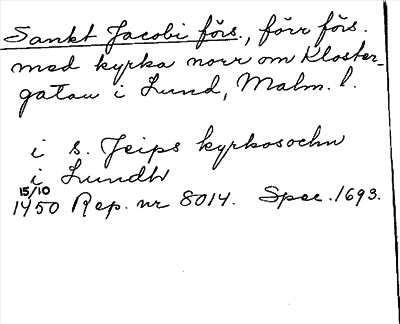 Sankt Jacobi förs., förr förs.
med kyrka norr om Kloster-
gatan i Lund, Malm. l.
i S. Jeips kyrkosochn
i Lundh
15/10
1450 Rep. nr 8014. Spec. 1693.